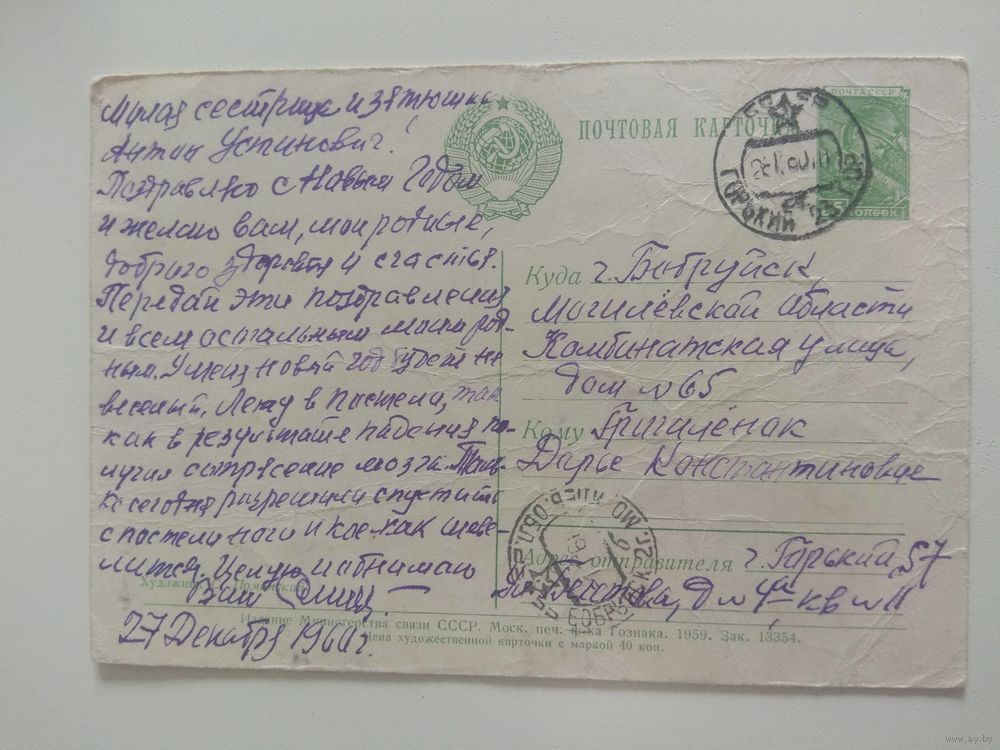 Милая сестрица и зятюшка
Антон Устинович!
Поздравляю с Новым Годом
и желаю вам, мои родные,
доброго здоровья и счастья.
Передай эти поздравления
и всем остальным моим род-
ным. У меня новый год будет не
веселый. Лежу в постели, так
как в результате падения по-
лучил сотрясение мозга. Толь-
ко сегодня разрешили спустить
с постели ноги и кое-как шеве-
лится. Целую и обнимаю
Ваш
27 Декабря 1960 г.
ПОЧТОВАЯ КАРТОЧКА
ПОЧТА СССР
КОПЕЕК
СССР
ГОРЬКИЙ
Куда г. Бобруйск
Могилёвской Области
Комбинатская улица,
дом № 65
Кому Григалёнок
Дарье Константиновне
МОГИЛЕВ. ОБЛ.
БОБРУЙСК
Адрес отправителя г. Горький, 57
д № 4а кв № 11
Художник
Издание Министерства связи СССР. Моск. печ. ф-ка Гознака. 1959. Зак. 13354.
Цена художественной карточки с маркой 40 коп.
www.ay.by